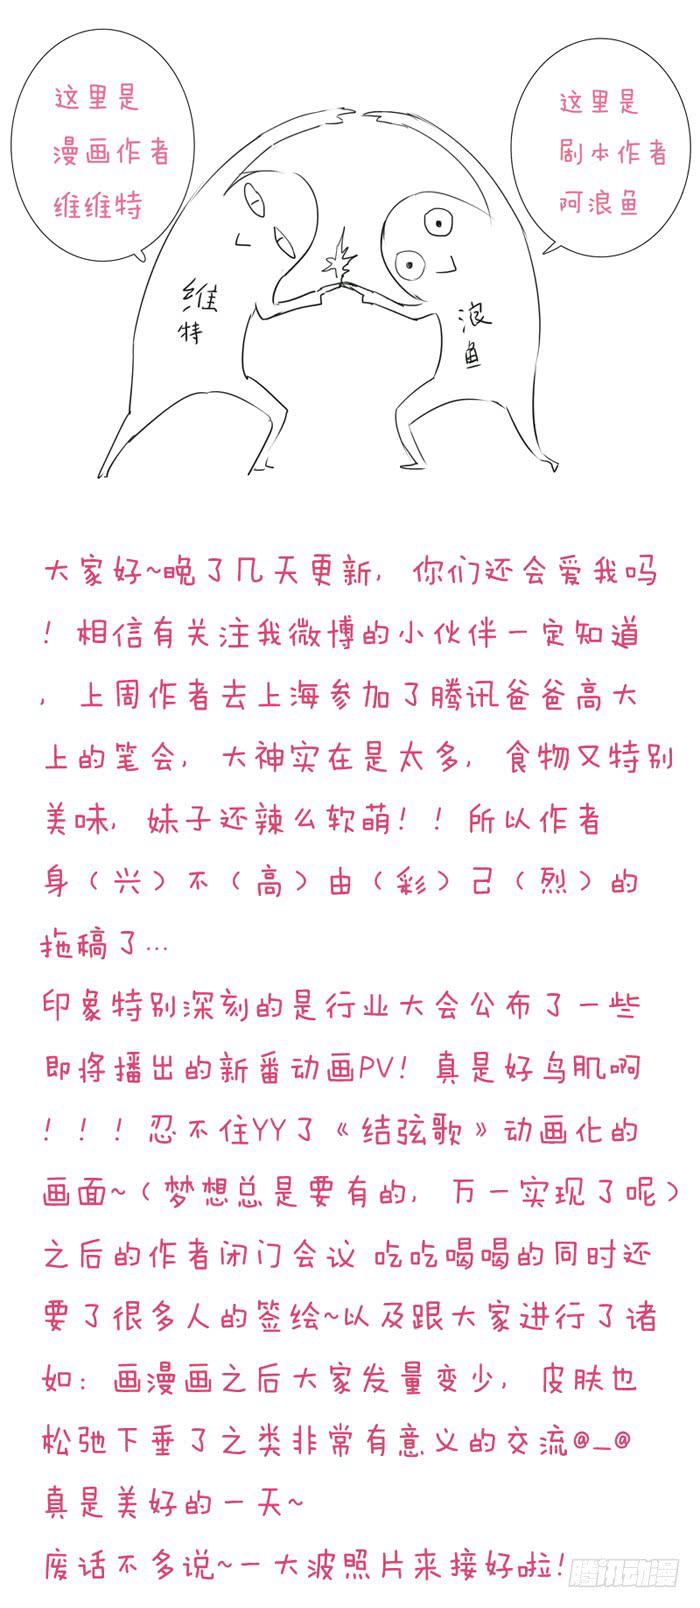 这里是
漫画作者
维维特
这里是
剧本作者
阿浪鱼
维
特
浪
鱼
大家好~晚了几天更新,你们还会爱我吗
!相信有关注我微博的小伙伴一定知道
,上周作者去上海参加了腾讯爸爸高大
上的笔会,大神实在是太多,食物又特别
美味,妹子还辣么软萌!!所以作者
身(兴)不(高)由(彩)己(烈)的
拖稿了...
印象特别深刻的是行业大会公布了一些
即将播出的新番动画PV!真是好鸟肌啊
!!!忍不住YY了《结弦歌》动画化的
画面~(梦想总是要有的,万一实现了呢)
之后的作者闭门会议 吃吃喝喝的同时还
要了很多人的签绘~以及跟大家进行了诸
如:画漫画之后大家发量变少,皮肤也
松弛下垂了之类非常有意义的交流@_@
真是美好的一天~
废话不多说~一大波照片来接好啦!
腾讯动漫